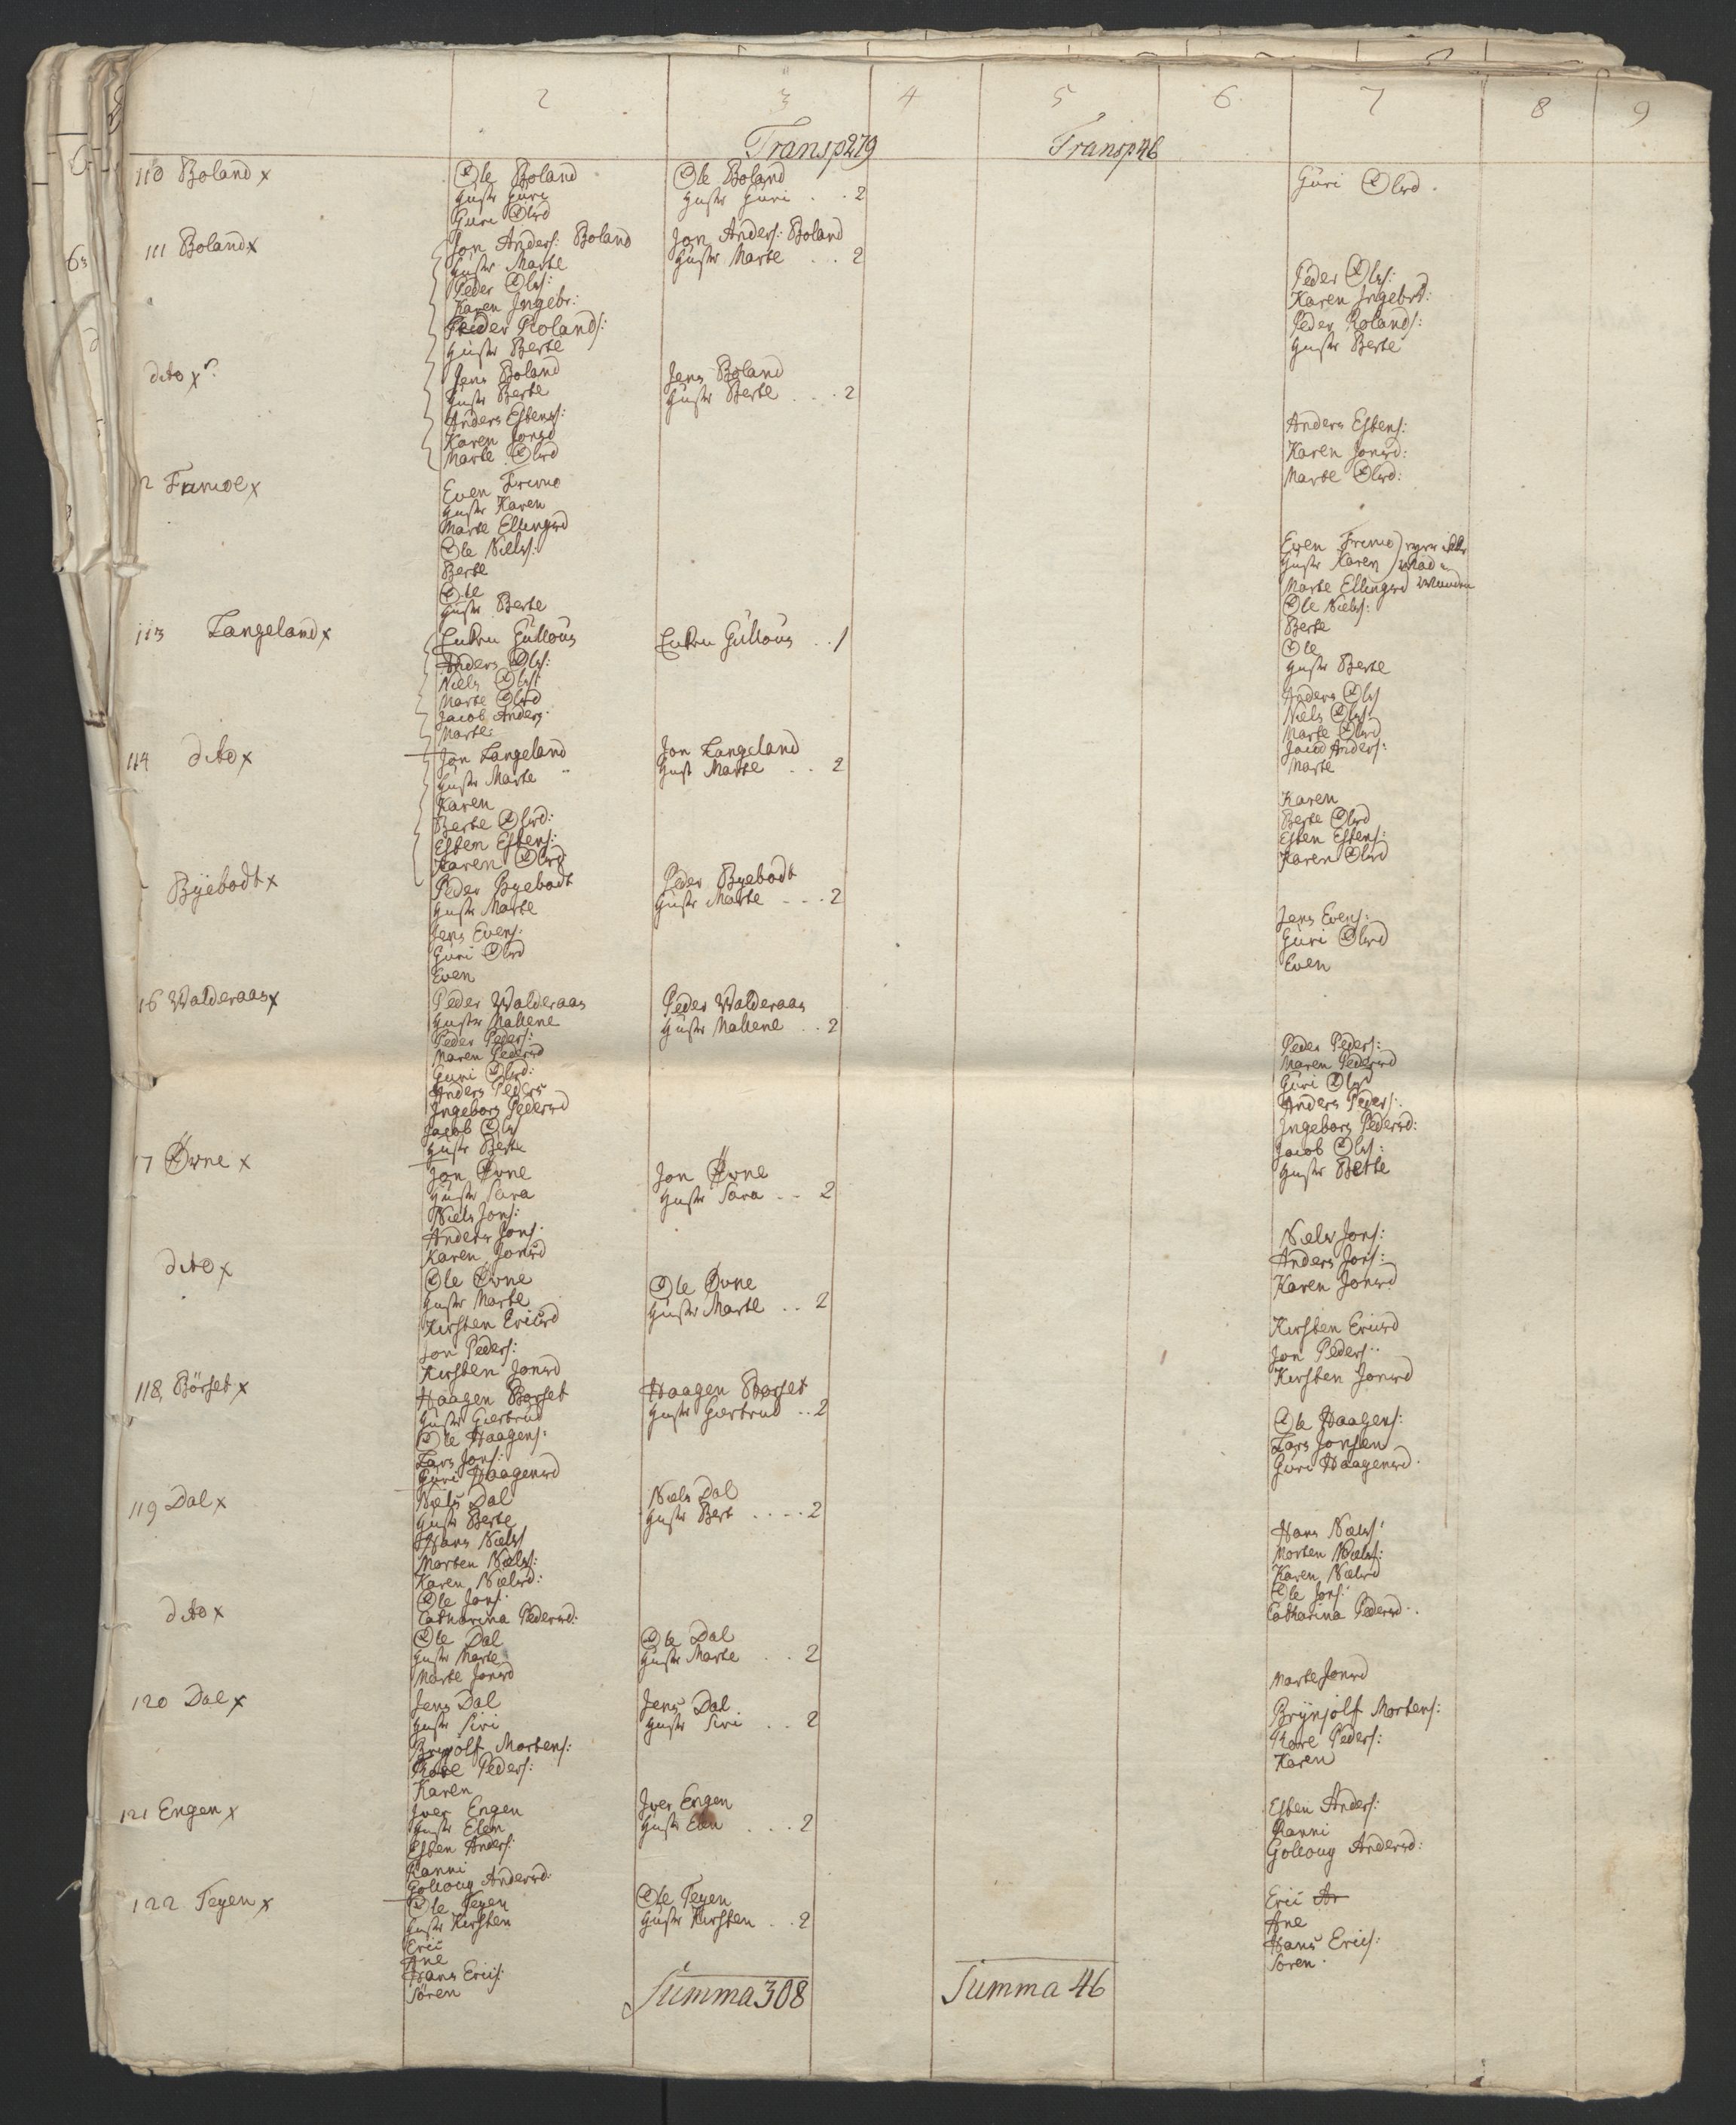 2 3 4 5 6 7 8 9
Transp 279 Transp 46
110 Boland x Ole Boland Ole Boland Guri Olsd.
Hustr Guri Hustr Guri . . 2
Guri Olsd
111 Boland x Jon Anders: Boland Jon Anders: Boland
Hustr Marte Hustr Marte . . 2
Peder Ols: Peder Ols:
Karen Ingebr: Karen Ingebrd:
Peder Rolands: Peder Rolands:
Hustr Berte Hustr Berte
dito x Jens Boland Jens Boland
Hustr Berte Hustr Berte . . . 2
Anders Estens: Anders Estens:
Karen Jonsd Karen Jonsd:
Marte Olsd Marte Olsd:
2 Fremoe x Even Fremo Even Fremo
Hustr Karen Hustr Karen
Marte Ellingsd Marte Ellingsd
Ole Niels: Ole Niels:
Berte Berte
Ole Ole
Hustr Berte Hustr Berte
113 Langeland x Gullous Gullous . . 1
Anders Ols: Anders Ols
Niels Ols: Niels Ols:
Marte Olsd Marte Olsd
Jacob Anders: Jacob Anders:
Marte Marte
114 dito x Jon Langeland Jon Langeland
Hustr Marte Hust Marte . . 2
Karen Karen
Berte Olsd: Berte Olsd
Esten Estens: Esten Estens:
Karen Olsd Karen Olsd
Byebodt x Peder Byebodt Peder Byebodt
Hustr Marte Hustr Marte - - - 2
Jens Evens: Jens Evens:
Guri Olsd Guri Olsd
Even Even
16 Walderaas x Peder Walderaas Peder Walderaas
Hustr Malene Hustr Malene . . 2
Peder Peders: Peder Peders:
Maren Pedersd Maren Pedersd
Guri Olsd: Guri Olsd
Anders Peders Anders Peders:
Ingebors Pedersd Ingebors Pedersd:
Jacob Ols Jacob Ols:
Hustr Berte Hustr Berte
17 Øvne x Jon Øvne Jon Øvne
Hustr Sara Hustr Sara - - 2
Niels Jons: Niels Jons:
Anders Jons: Anders Jons:
Karen Jonsd Karen Jonsd
dito x Ole Øvne Ole Øvne
Hustr Marte Hustr Marte . . 2
Kirsten Ericsd Kirsten Ericsd
Jon Peders: Jon Peders:
Kirsten Jonsd Kirsten Jonsd
118 Börset x Haagen Borset Haagen Borset
Hustr Giertrud Hustr Giertrud . . 2
Ole Haagens: Ole Haagens:
Lars Jons: Lars Jonsen
Guri Haagensd Guri Haagensd.
119 Dal x Niels Dal Niels Dal
Hustr Berte Hustr Bert . . . . 2
Hans Niels Hans Niels:
Morten Niels: Morten Niels:
Karen Nielsd: Karen Nielsd
Ole Jons: Ole Jons:
Catharina Pedersd: Catharina Pedersd.
dito x Ole Dal Ole Dal
Hustr Marte Hustr Marte . . 2
Marte Jonsd Marte Jonsd
120 Dal x Jens Dal Jens Dal
Hustr Siri Hustr Siri . . 2
Brynjolf Mortens: Brynjolf Mortens:
Peders: Peders:
Karen Karen
121 Engen x Iver Engen Iver Engen
Hustr Elen Hustr Elen . . . 2
Esten Anders: Esten Anders:
Ranni Ranni
Golloug Andersd: Golloug Andersd:
122 Teyen x Ole Teyen Ole Teyen
Hustr Kirsten Hustr Kirsten . . 2
Eric Eric
Ane Ane
Hans Erics: Hans Erics:
Sören Soren
Summa 308 Summa 46